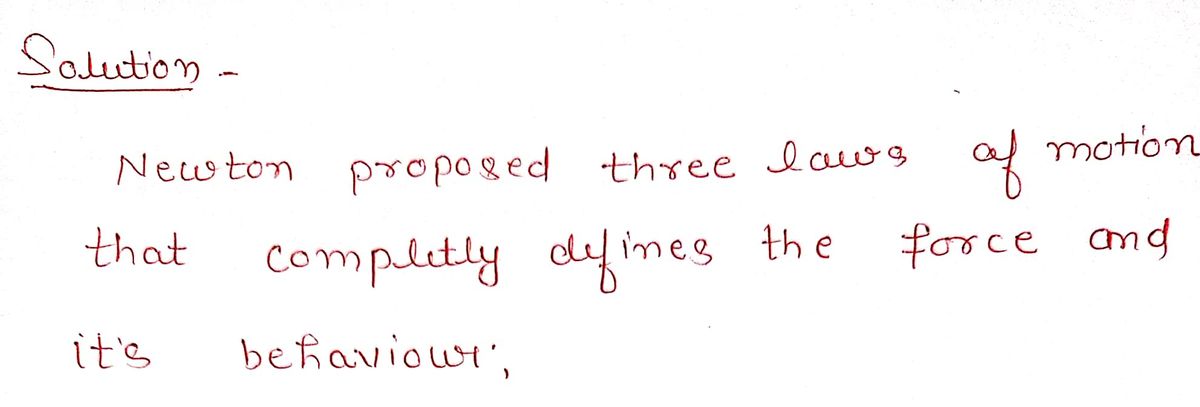 Solution -
Newton proposed three laws of motion
that completly defines the force and
it's behaviour;